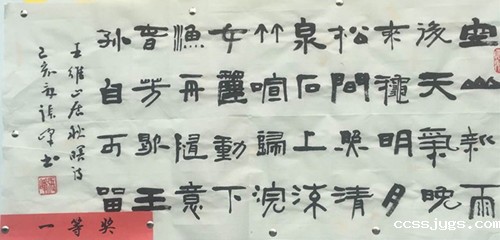 空山新雨
後天氣晚
來穐明月
松間照清
泉石上流
竹喧歸浣
女蓮動下
漁舟隨意
春芳歇王
孫自可留
王維山居秋暝詩
己亥
一等奖
ccssjugs.com